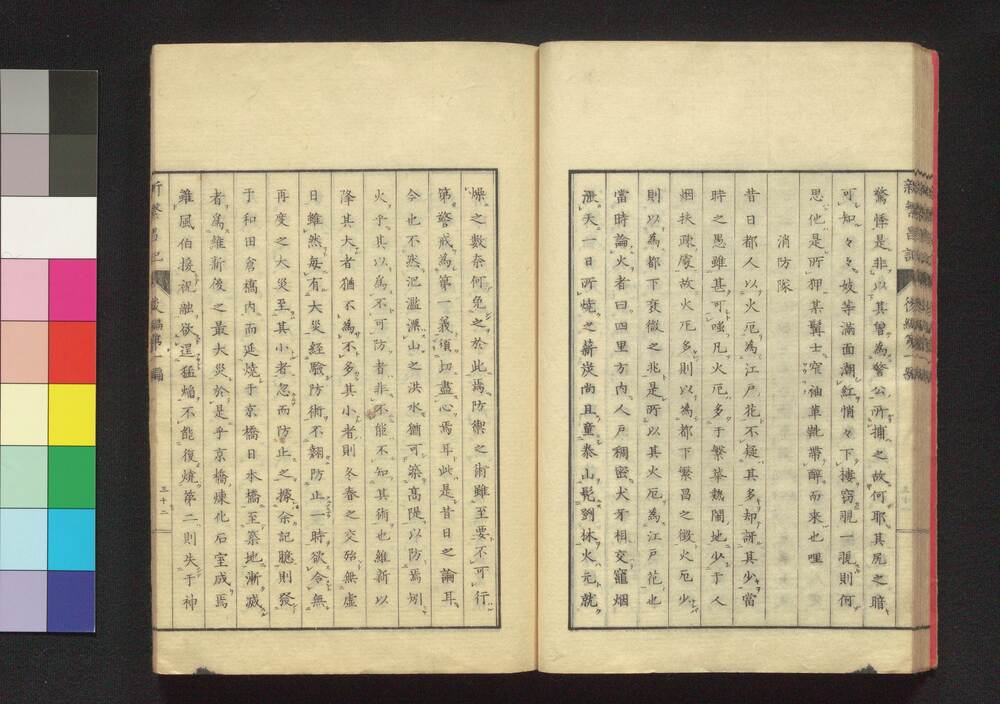 驚悸是非以其曽為警公所捕之故何耶其尻之暗
可知々々妓等滿面潮紅悄々下摟窈覗一覗則何
思他是所狎某鬍士窄袖革靴帶醉而来也哩
消防隊
昔日都人以火厄為江戸花不疑其多却訝其少當
時之愚雖甚可嗤凡火厄多于繁華熱閙地少于人
烟扶疎處故火厄多則以為都下繁昌之徴火厄少
則以為都下衰微之兆是所以其火厄為江戸花也
當時論火者曰四里方内人戸稠密犬牙相交竈烟
漲天一日所燒之薪炭尚且童泰山髡鄧林火元就
燥之數奈何免之於此焉防禦之術雖至要不可行
第警戒為第一義須切盡心焉耳此是昔日之論耳
今也不然氾濫漂山之洪水猶可築髙隄以防焉刎
火乎其以為不可防者非不能不知其術也維新以
降其大者猶不為不多其小者則冬春之交殆無虚
日雖然毎有大災経驗防術不翅防止一時欲令無
再度之大災至其小者忽而防止之據余記臆則發
于和田倉橋内而延燒于京橋日本橋至築地漸滅
者爲維新後之最大災於是乎京橋煉化石室成焉
雖風伯援祝融欲逞猛焔不能復燒第二則失于神
後編第一編
三十二